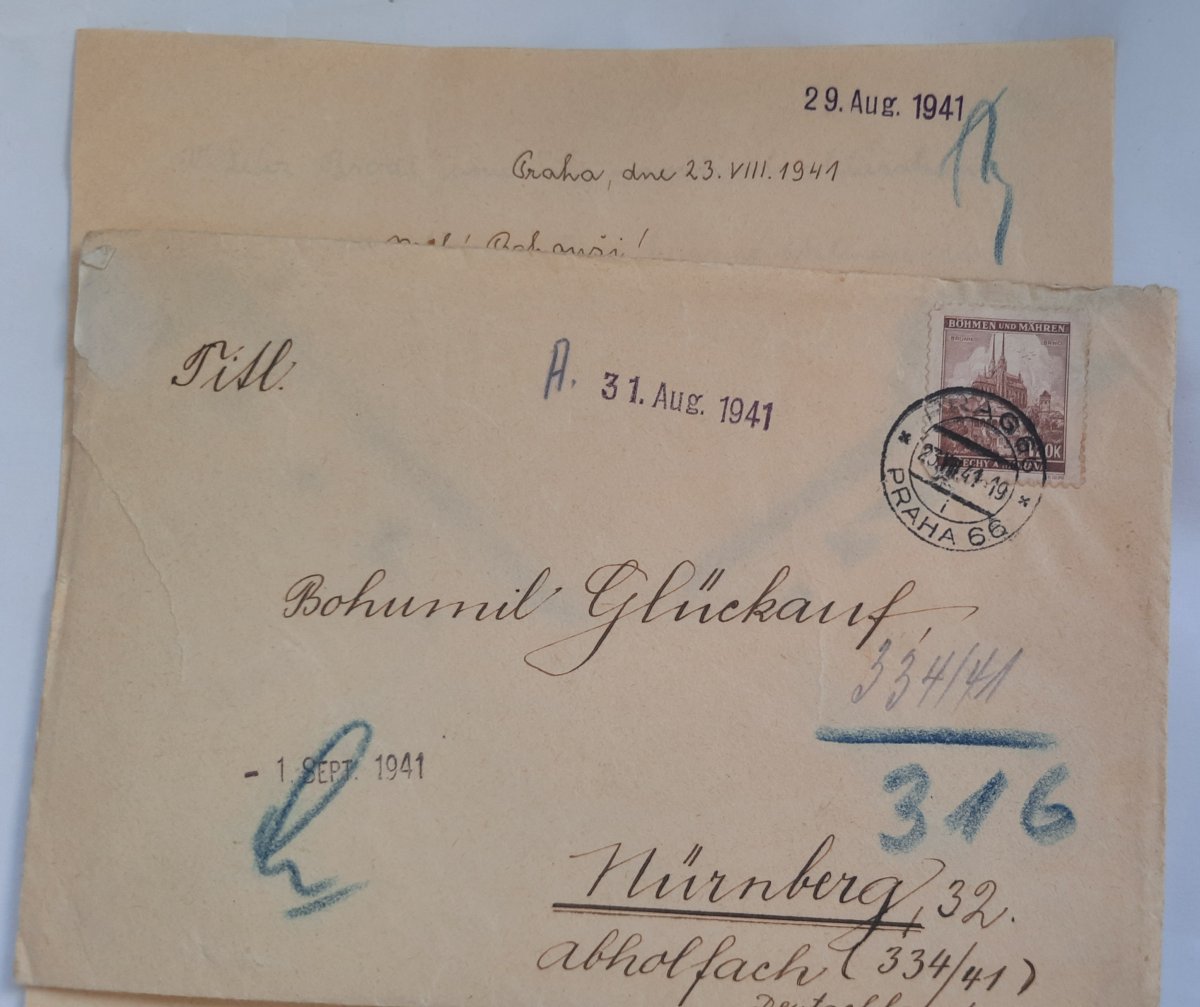 29. Aug. 1941
Praha, dne 23. VIII. 1941
Titl.
A.
31. Aug. 1941
BÖHMEN UND MÄHREN
BRÜNN BRNO
PRAG 66
23.VIII.41-19
i
PRAHA 66
Bohumil Glückauf,
334/41
316
- 1. SEPT. 1941
Nürnberg, 32.
abholfach (334/41)